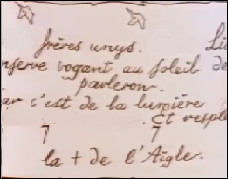 frères unys. Lic
nserve vogant au soleil de
parleron.
ar c'est de la lumière
Et resple
7 7
la + de l'Aigle.